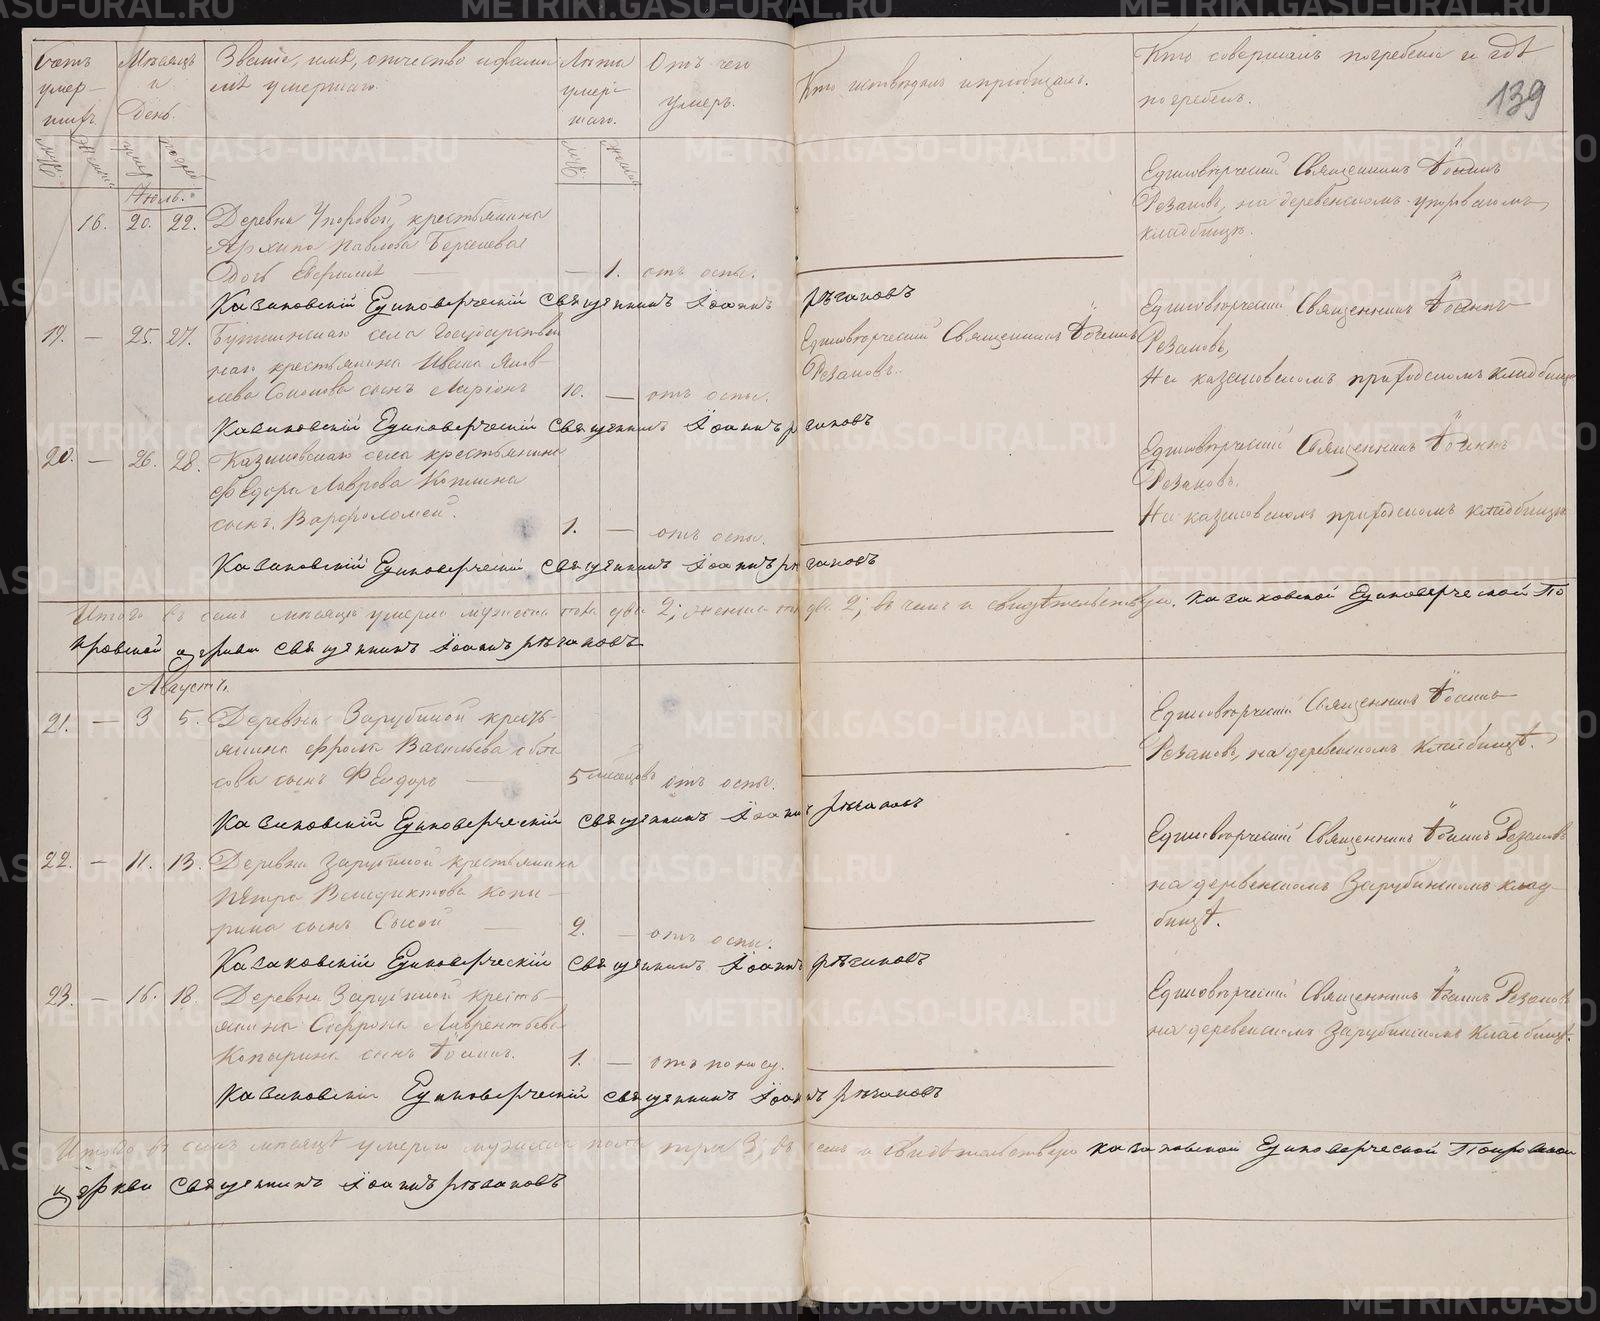 Мѣсяцъ и День.
Званіе, имя, отчество и фами
лія умершаго.
Лѣта умер-
шаго.
Отъ чего умеръ.
Кто исповѣдалъ и пріобщалъ.
Кто совершалъ погребеніе и гдѣ
погребенъ.
139
Іюль.
16. 20. 22. Деревни Упоровой, крестьянина
Архипа Павлова
дочь — 1. отъ оспы.
Единовѣрческій Священникъ Іоаннъ
Резановъ, на деревенскомъ упоровскомъ
кладбищѣ.
Казаковскій Единоверческій священникъ Іоаннъ рѣзановъ
19. — 25. 27. села Государствен
наго крестьянина Ивана Яков
лева сынъ Ларіонъ 10. — отъ оспы.
Единовѣрческій Священникъ Іоаннъ
Резановъ.
Единовѣрческій Священникъ Іоаннъ
Резановъ,
На казаковскомъ приходскомъ кладбищѣ
Казаковскій Единоверческій священникъ Іоаннъ рѣзановъ
20. — 26. 28. Казаковскаго села крестьянина
Федора Лаврова
сынъ Варфоломей. 1. — отъ оспы.
Единовѣрческій Священникъ Іоаннъ
Резановъ.
На казаковскомъ приходскомъ кладбищѣ
Казаковскій Единоверческій священникъ Іоаннъ рѣзановъ
Итого въ семъ мѣсяцѣ умерло мужеска пола два 2; женска два 2; въ чемъ и свидѣтельствую. Казаковской Единоверческой По
кровской церкви священникъ Іоаннъ рѣзановъ
Августъ.
21. — 3 5. Деревни Зарубиной кресть-
янина Фрола Васильева
сынъ Феодоръ — 5 мѣсяцовъ отъ оспы.
Единовѣрческій Священникъ Іоаннъ
Резановъ, на деревенскомъ кладбищѣ.
Казаковскій Единоверческій священникъ Іоаннъ рѣзановъ
22. — 11. 13. Деревни Зарубиной крестьянина
Петра Венедиктова Копы-
рина сынъ Сысой 2. — отъ оспы.
Единовѣрческій Священникъ Іоаннъ Резановъ
на деревенскомъ Зарубинскомъ клад-
бищѣ.
Казаковскій Единоверческій священникъ Іоаннъ рѣзановъ
23. — 16. 18. Деревни Зарубиной кресть-
янина Софрона Лаврентьева
Копырина сынъ Іоаннъ. 1. — отъ поносу.
Единовѣрческій Священникъ Іоаннъ Резановъ
на деревенскомъ Зарубинскомъ кладбищѣ.
Казаковскій Единоверческій священникъ Іоаннъ рѣзановъ
Итого въ семъ мѣсяцѣ умерло мужеска пола три 3; въ чемъ и свидѣтельствую Казаковской Единоверческой Покровской
церкви священникъ Іоаннъ рѣзановъ
METRIKI.GASO-URAL.RU